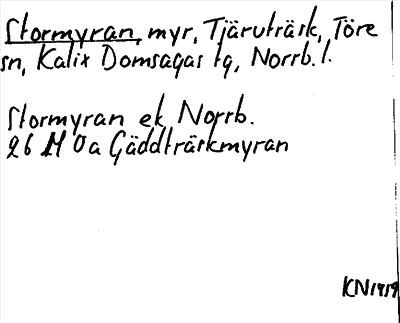 Stormyran, myr, Tjäruträsk, Töre
sn, Kalix Domsagas tg, Norrb. l.
Stormyran ek Norrb.
26 M 0a Gäddträskmyran
KN1919